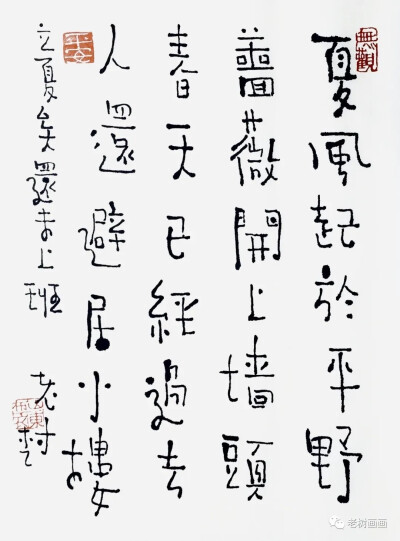 無觀
夏風起於平野
薔薇開上墙頭
春天已經過去
人還避居小樓
平安
立夏矣還未上班
老
老树画画